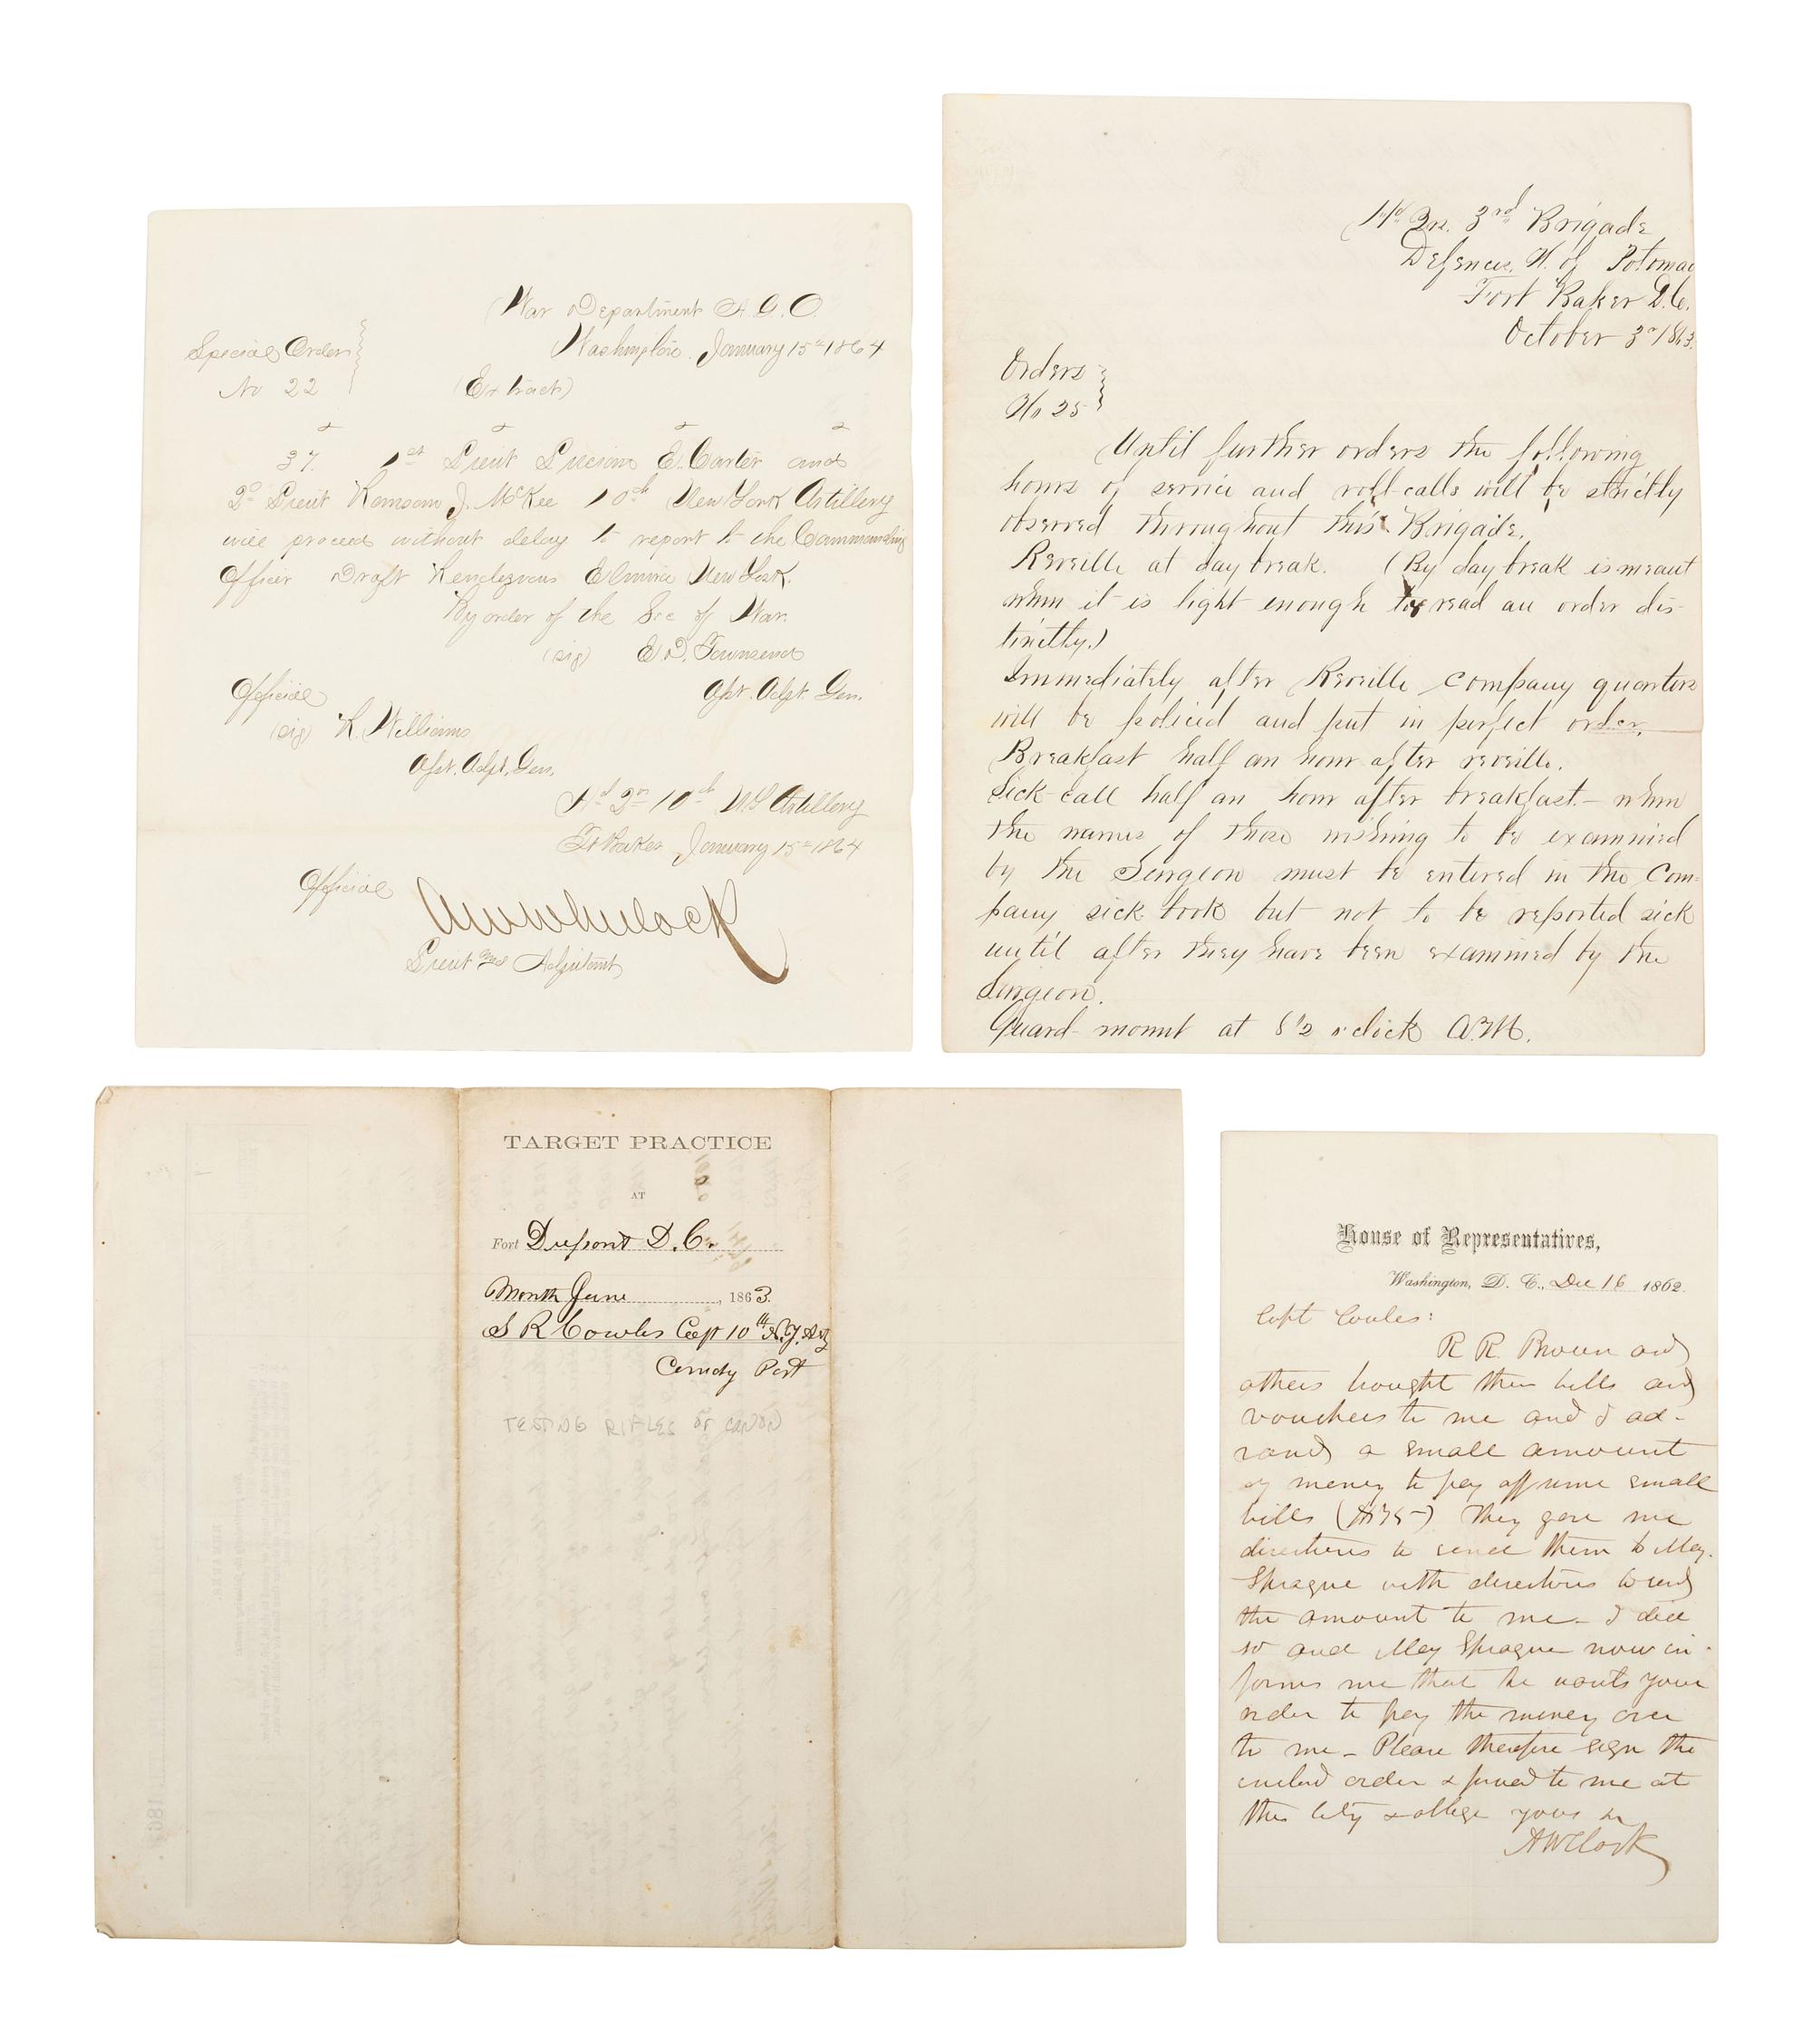 War Department A. G. O.
Washington January 15th 1864
Special Order
No 22
(Extract)
37. 1st Lieut E. Carter and
2d Lieut Ransom J. McKee 10th New York Artillery
will proceed without delay to report to the Commanding
Officer Draft Rendezvous Elmira New York.
By order of the Sec of War.
(sig) E. D. Townsend
Asst. Adjt. Gen.
Official
(sig) Williams
Asst. Adjt. Gen.
Hd Qrs 10th NY Artillery
Ft Baker January 15th 1864
Official
Lieut and Adjutant
Hd Qrs. 3rd Brigade
Defences N. of Potomac
Fort Baker D.C.
October 3rd 1863.
Orders
No 25
Until further orders the following
hours of service and roll-calls will be strictly
observed throughout this Brigade.
Reveille at day break. (By day break is meant
when it is light enough to read an order dis-
tinctly.)
Immediately after Reveille company quarters
will be policed and put in perfect order.
Breakfast half an hour after reveille.
Sick-call half an hour after breakfast - when
the names of those wishing to be examined
by the Surgeon must be entered in the Com-
pany sick book but not to be reported sick
until after they have been examined by the
Surgeon.
Guard-mount at o'clock A.M.
TARGET PRACTICE
AT
Fort Dupont D.C.
Month June, 1863.
S R Cowles Capt 10th N.Y. Art
Comdg Post
TESTING RIFLES OF CANON
House of Representatives,
Washington, D. C., Dec 16 1862.
Capt Cowles:
R R. Brown and
others brought their bills and
vouchers to me and I ad-
vanced a small amount
of money to pay off some small
bills ($175-) They gave me
directions to send them to Maj.
Sprague with directions to send
the amount to me - I did
so and Maj Sprague now in-
forms me that he wants your
order to pay the money over
to me - Please therefore sign the
enclosed order & forward to me at
this City & oblige yours &c
A W Clark